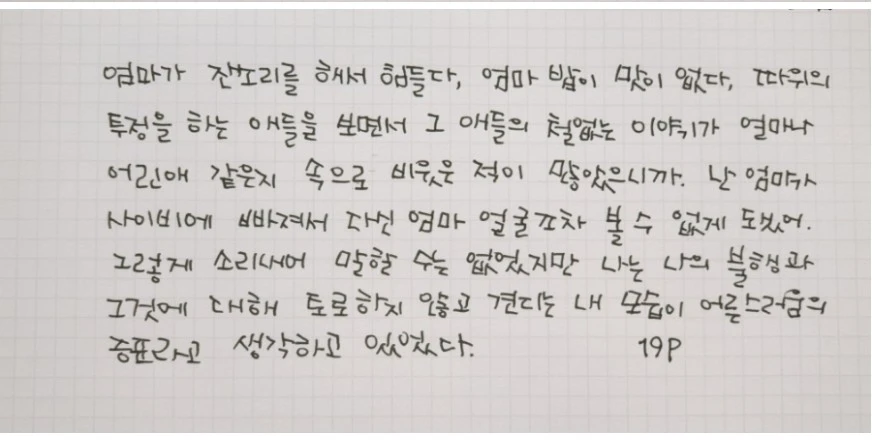 엄마가 잔소리를 해서 힘들다, 엄마 밥이 맛이 없다, 따위의
투정을 하는 애들을 보면서 그 애들의 철없는 이야기가 얼마나
어린애 같은지 속으로 비웃은 적이 많았으니까. 난 엄마가
사이비에 빠져서 다신 엄마 얼굴조차 볼 수 없게 됐어.
그렇게 소리내어 말할 수는 없었지만 나는 나의 불행과
그것에 대해 토로하지 않고 견디는 내 모습이 어른스러움의
증표라고 생각하고 있었다. 19P